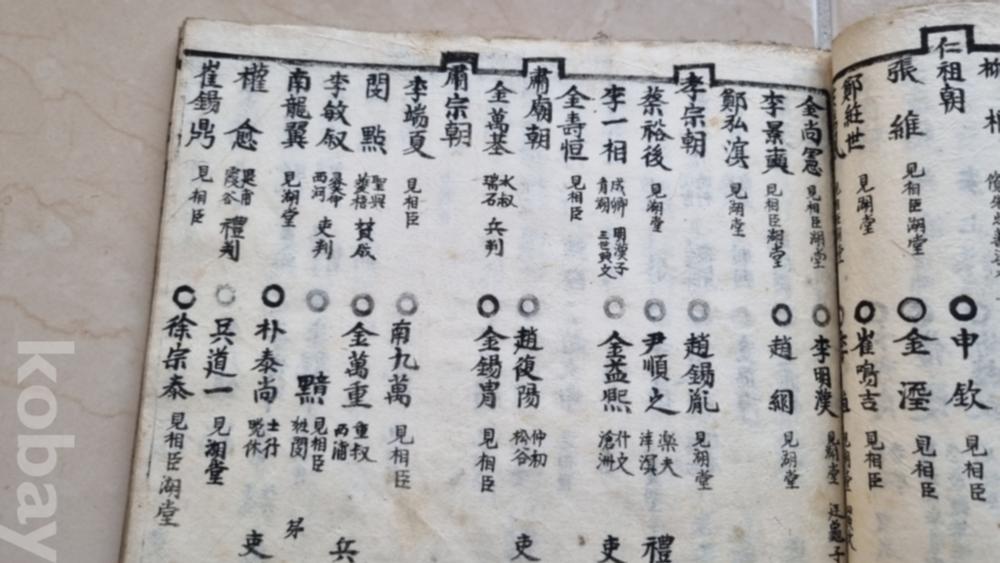 仁祖朝
張維
見相臣湖堂
申欽
見相臣
金瑬
見相臣
見湖堂
崔鳴吉
見相臣
金尚憲
見相臣湖堂
李明漢
見湖堂
李景奭
見相臣湖堂
趙絅
見湖堂
鄭弘溟
見湖堂
孝宗朝
趙錫胤
見湖堂
蔡裕後
見湖堂
尹順之
樂夫
涬溟
禮
李一相
成卿
青湖
明漢子
三世典文
金益熙
仲文
滄洲
吏
金壽恒
見相臣
肅廟朝
趙復陽
仲初
松谷
吏
金萬基
永叔
瑞石
兵判
金錫胄
見相臣
肅宗朝
李端夏
見相臣
南九萬
見相臣
閔點
聖與
贊成
金萬重
重叔
西浦
兵
李敏叙
彝仲
西河
吏判
黯
見相臣
弟
南龍翼
見湖堂
朴泰尚
士行
晩休
吏
權愈
霞谷
禮判
吳道一
見湖堂
崔錫鼎
見相臣
徐宗泰
見相臣湖堂
kobay